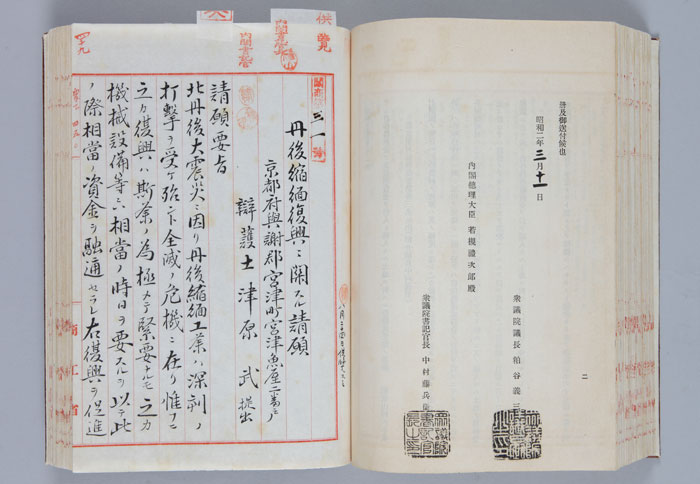 普及御送付候也
昭和二年三月十一日
内閣總理大臣 若槻禮次郎殿
衆議院議長 粕谷義三
衆議院書記官長 中村藤兵衞
二
供覽
丹後縮緬復興ニ關スル請願
京都府與謝郡宮津町宮津魚屋
辯護士津原 武 提出
請願要旨
北丹後大震災ニ因リ丹後縮緬工業ハ深刻ノ
打擊ヲ受ケ殆ント全滅ノ危機ニ在リ惟フニ
之カ復興ハ斯業ノ為極メテ緊要ナルモ之カ
機械設備等ニハ相當ノ時日ヲ要スルヲ以テ此
ノ際相當ノ資金ヲ融通セラレ右復興ヲ促進
商工省